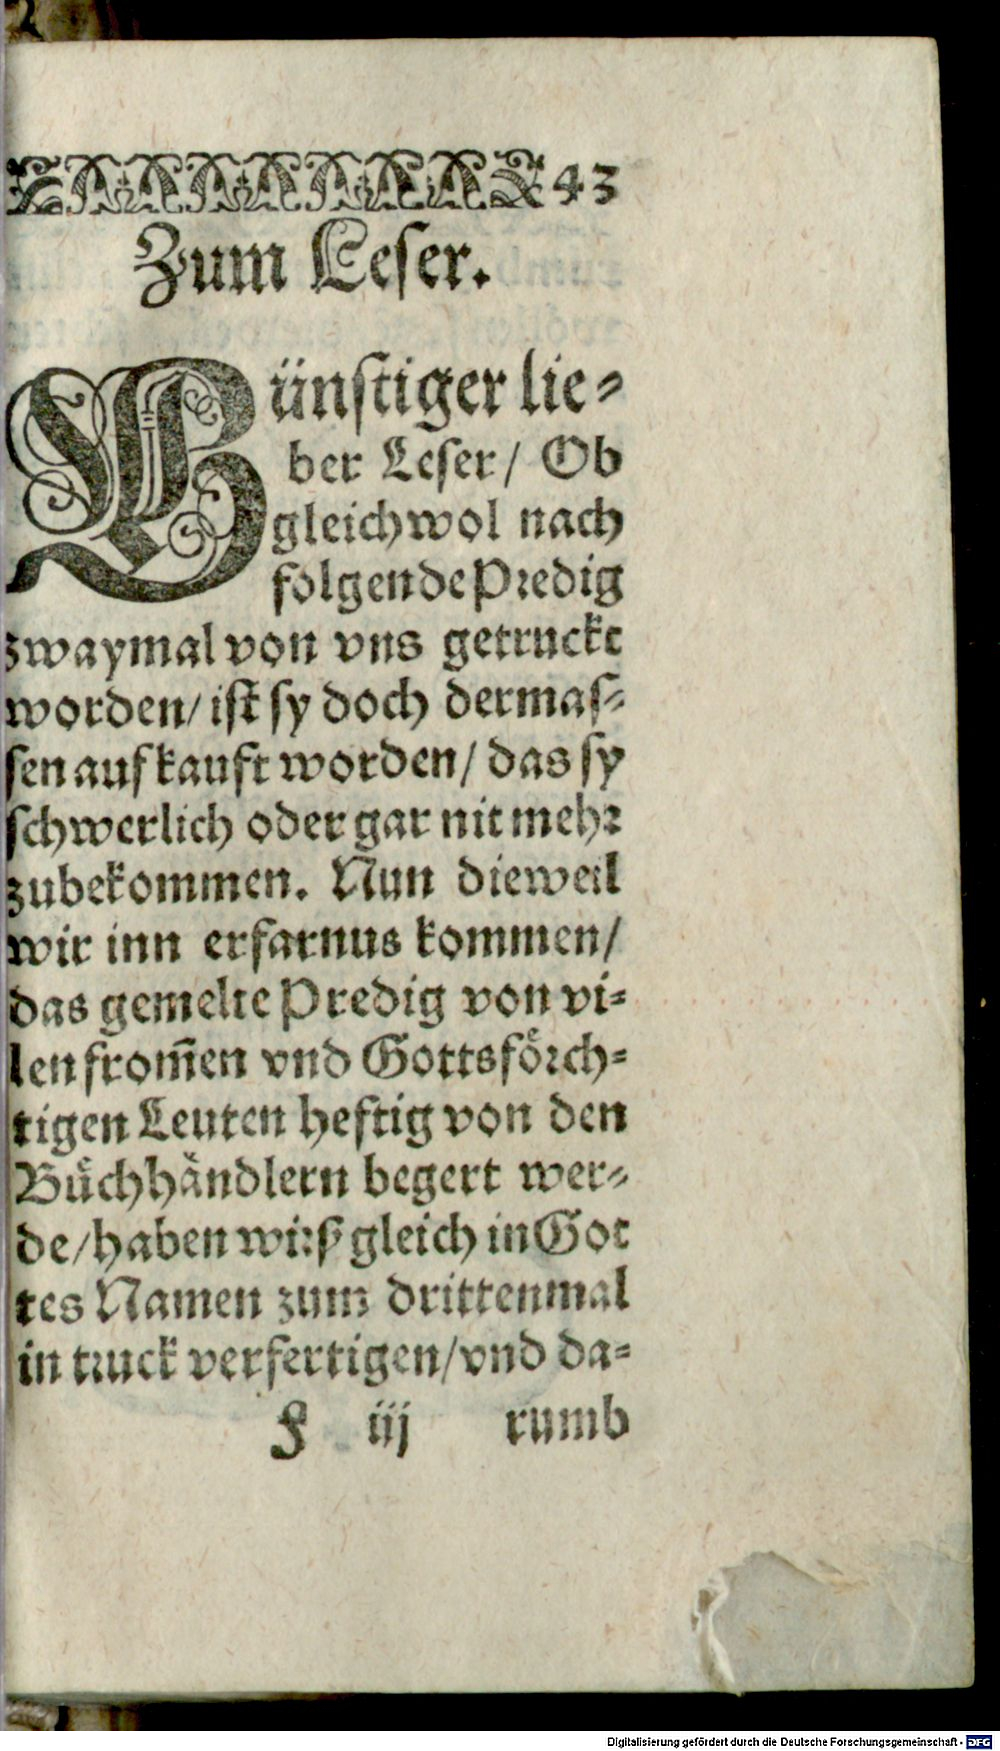 43
Zum Leser.
Günstiger lie-
ber Leser/ Ob
gleichwol nach
folgende Predig
zwaymal von vns getruckt
worden/ ist sy doch dermas-
sen auf kauft worden/ das sy
schwerlich oder gar nit mehr
zubekommen. Nun dieweil
wir inn erfarnus kommen/
das gemelte Predig von vi-
len from̃en vnd Gottsfoͤrch-
tigen Leuten heftig von den
Buͤchhaͤndlern begert wer-
de/ haben wirß gleich in Got
tes Namen zum drittenmal
in truck verfertigen/ vnd da-
F iij rumb
Digitalisierung gefördert durch die Deutsche Forschungsgemeinschaft - DFG